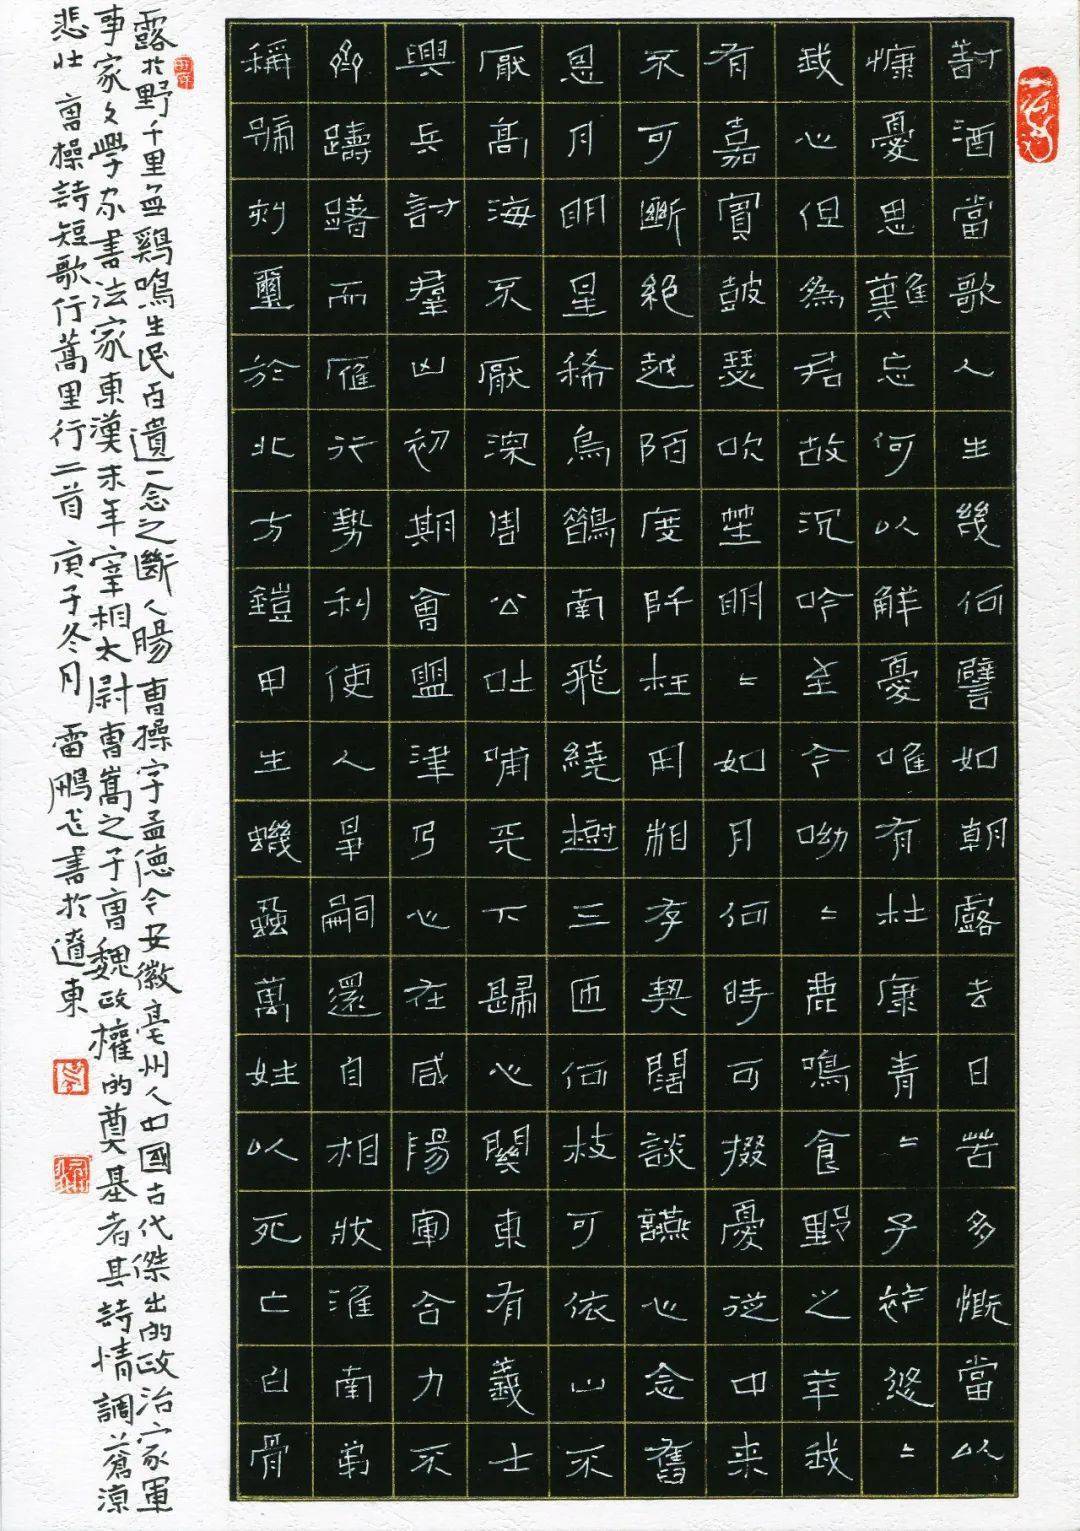 對酒當歌人生幾何譬如朝露去日苦多慨當以
慷憂思難忘何以解憂唯有杜康青〻子衿悠〻
我心但為君故沉吟至今呦〻鹿鳴食野之苹我
有嘉賓鼓瑟吹笙明〻如月何時可掇憂從中来
不可斷絕越陌度阡枉用相存契闊談讌心念舊
恩月明星稀烏鵲南飛繞樹三匝何枝可依山不
厭高海不厭深周公吐哺天下歸心關東有義士
興兵討羣凶初期會盟津乃心在咸陽軍合力不
齊躊躇而雁行勢利使人爭嗣還自相戕淮南弟
稱號刻璽於北方鎧甲生蟣蝨萬姓以死亡白骨
露於野千里無鷄鳴生民百遺一念之斷人腸曹操字孟德今安徽亳州人中國古代傑出的政治家軍
事家文學家書法家東漢末年宰相太尉曹嵩之子曹魏政權的奠基者其詩情調蒼涼
悲壯曹操詩短歌行蒿里行二首庚子冬月雷鵬飞書於遼東